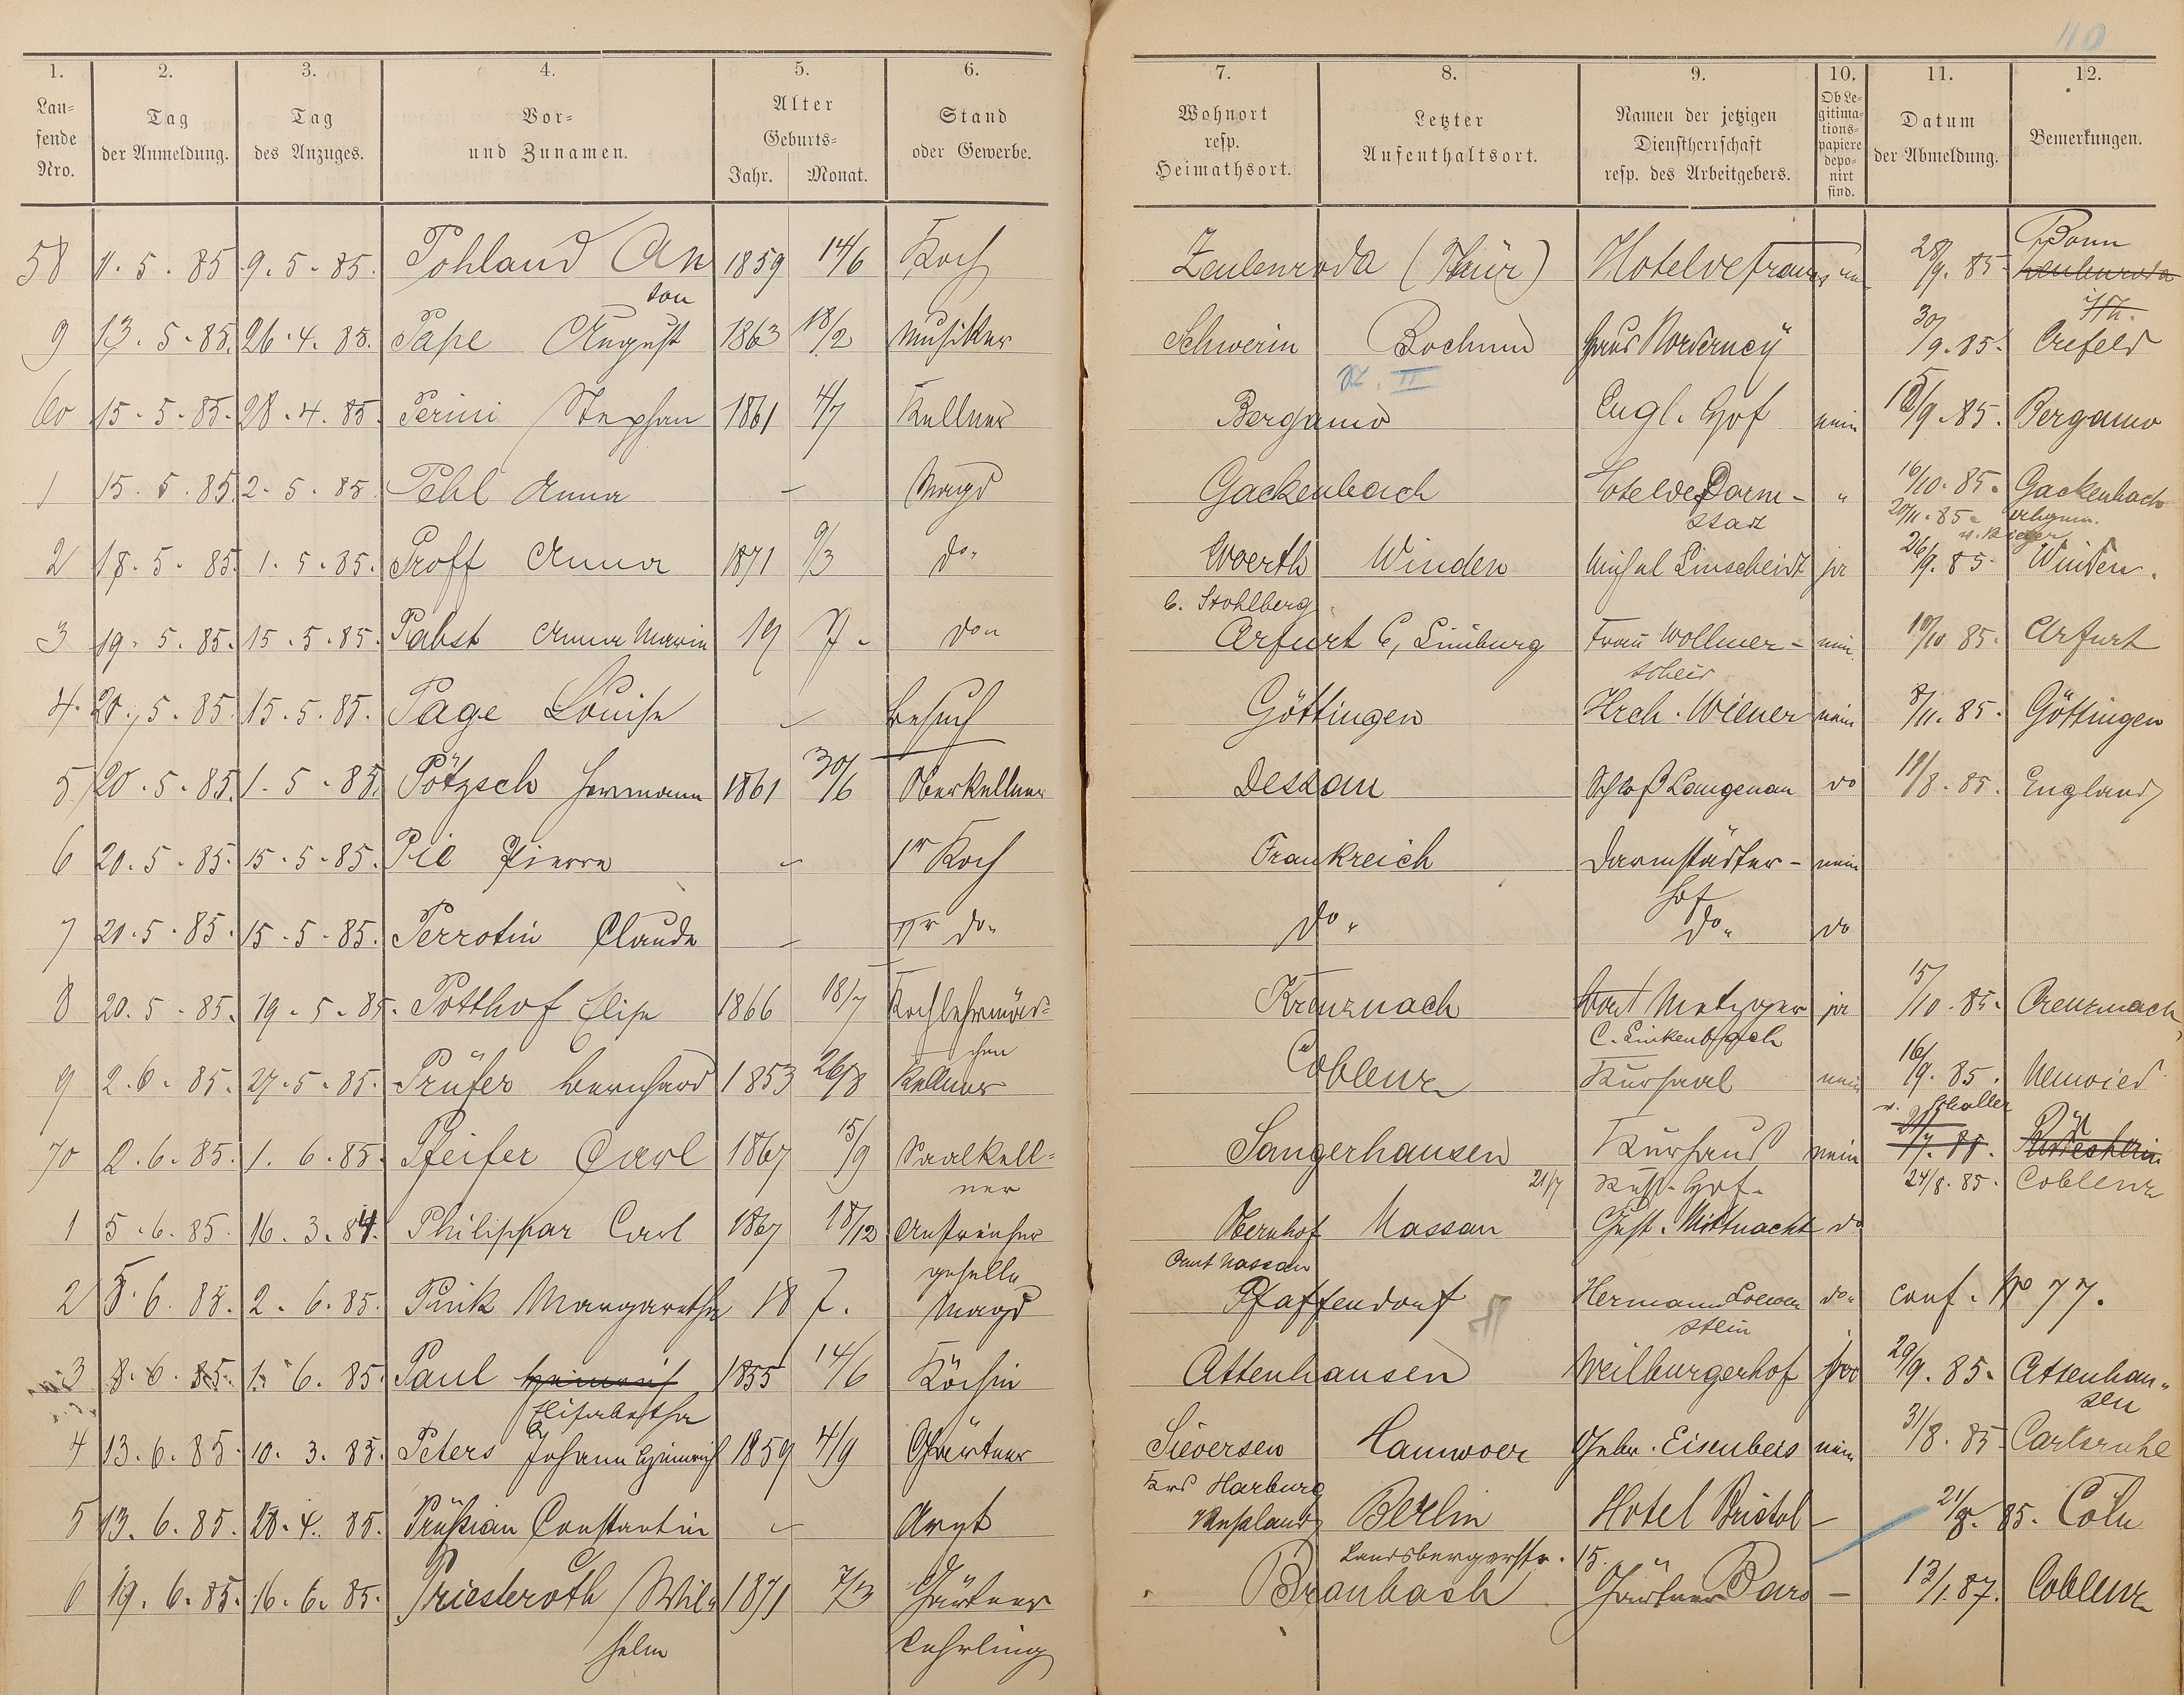 110
1. 2. 3. 4. 5. 6. 7. 8. 9. 10. 11. 12.
Lau-
fende
Nro.
Tag
der Anmeldung.
Tag
des Anzuges.
Vor-
und Zunamen.
Alter
Geburts-
Jahr. Monat.
Stand
oder Gewerbe.
Wohnort
resp.
Heimathsort.
Letzter
Aufenthaltsort.
Namen der jetzigen
Dienstherrschaft
resp. des Arbeitgebers.
Ob Le-
gitima-
tions-
papiere
depo-
nirt
sind.
Datum
der Abmeldung.
Bemerkungen.
58 11. 5. 85 9. 5. 85. Pohland An 1859 14/6 Koch Zeulenroda (Thür) 28/9. 85 Bonn
ton Zeulenroda
9 13. 5. 85. 26. 4. 85. Pape August 1863 18/2 Musiker Schwerin Bochum Haus Norderney 30/9. 85. Crefeld
II
60 15. 5. 85. 28. 4. 85. Perini Stephan 1861 4/7 Kellner Bergamo Engl. Hof nein /9. 85. Bergamo
1 15. 5. 85 2. 5. 85. Pehl Anna - Magd Gackenbach Hotel de Darm- " 16/10. 85. Gackenbach
stadt 20/11. 85.
2 18. 5. 85. 1. 5. 85. Proff Anna 1871 9/3 do. Woerth Winden Michel Linscheidt ja 26/9. 85. Winden.
b. Stohlberg
3 19. 5. 85. 15. 5. 85. Pabst Anna Maria 19 J. do. Arfurt b, Limburg Frau Wollmer- nein 10/10 85. Arfurt
scheid
4. 20. 5. 85. 15. 5. 85. Page Louise - Besuch Göttingen Hrch. Wiener nein 8/11. 85. Göttingen
5 20. 5. 85. 1. 5. 85. Pötzsch Hermann 1861 30/6 Oberkellner Dessau Schloß Langenau do 19/8. 85. England
6 20. 5. 85. 15. 5. 85. Pie Pierre - Ir Koch Frankreich Darmstädter- nein
Hof
7 20. 5. 85. 15. 5. 85. Perrotin Claude - IIr do. do. do. do
8 20. 5. 85. 19. 5. 85. Potthof Elise 1866 18/7 Kochlehrmäd- Kreuznach Metzger ja 15/10. 85. Creuznach
chen C. Linkenbach
9 2. 6. 85. 27. 5. 85. Prüfer Bernhard 1853 26/8 Kellner Coblenz Kursaal nein 16/9. 85. Neuwied
70 2. 6. 85. 1. 6. 85. Pfeifer Carl 1867 15/9 Saalkell- Sangerhausen Kurhaus nein
ner 21/7 Russ. Hof. 24/8. 85. Coblenz
1 5. 6. 85. 16. 3. 84. Philippar Carl 1867 18/12 Anstreicher Obernhof Nassau Gust. Mittnacht do
geselle Amt Nassau
2 8. 6. 85. 2. 6. 85. Pink Margaretha 18 J. Magd Pfaffendorf Hermann Loewen do. conf. No 77.
stein
3 8. 6. 85. 1. 6. 85. Paul Heinrich 1855 14/6 Köchin Attenhausen Weilburgerhof 29/9. 85. Attenhau-
Elisabetha sen
4 13. 6. 85. 10. 3. 85. Peters Johann Heinrich 1859 4/9 Gärtner Sieversen Hannover Gebr. Eisenbeis nein 31/8. 85. Carlsruhe
Krs Harburg
5 13. 6. 85. 28. 4. 85. Prüssian Constantin - Arzt Russland Berlin Hotel Bristol - 21/8. 85. Cöln
Landsbergerstr. 15.
6 19. 6. 85. 16. 6. 85. Priesteroth Wil 1871 7/3 Gärtner Braubach Gärtner - 13/1. 87. Coblenz
helm Lehrling